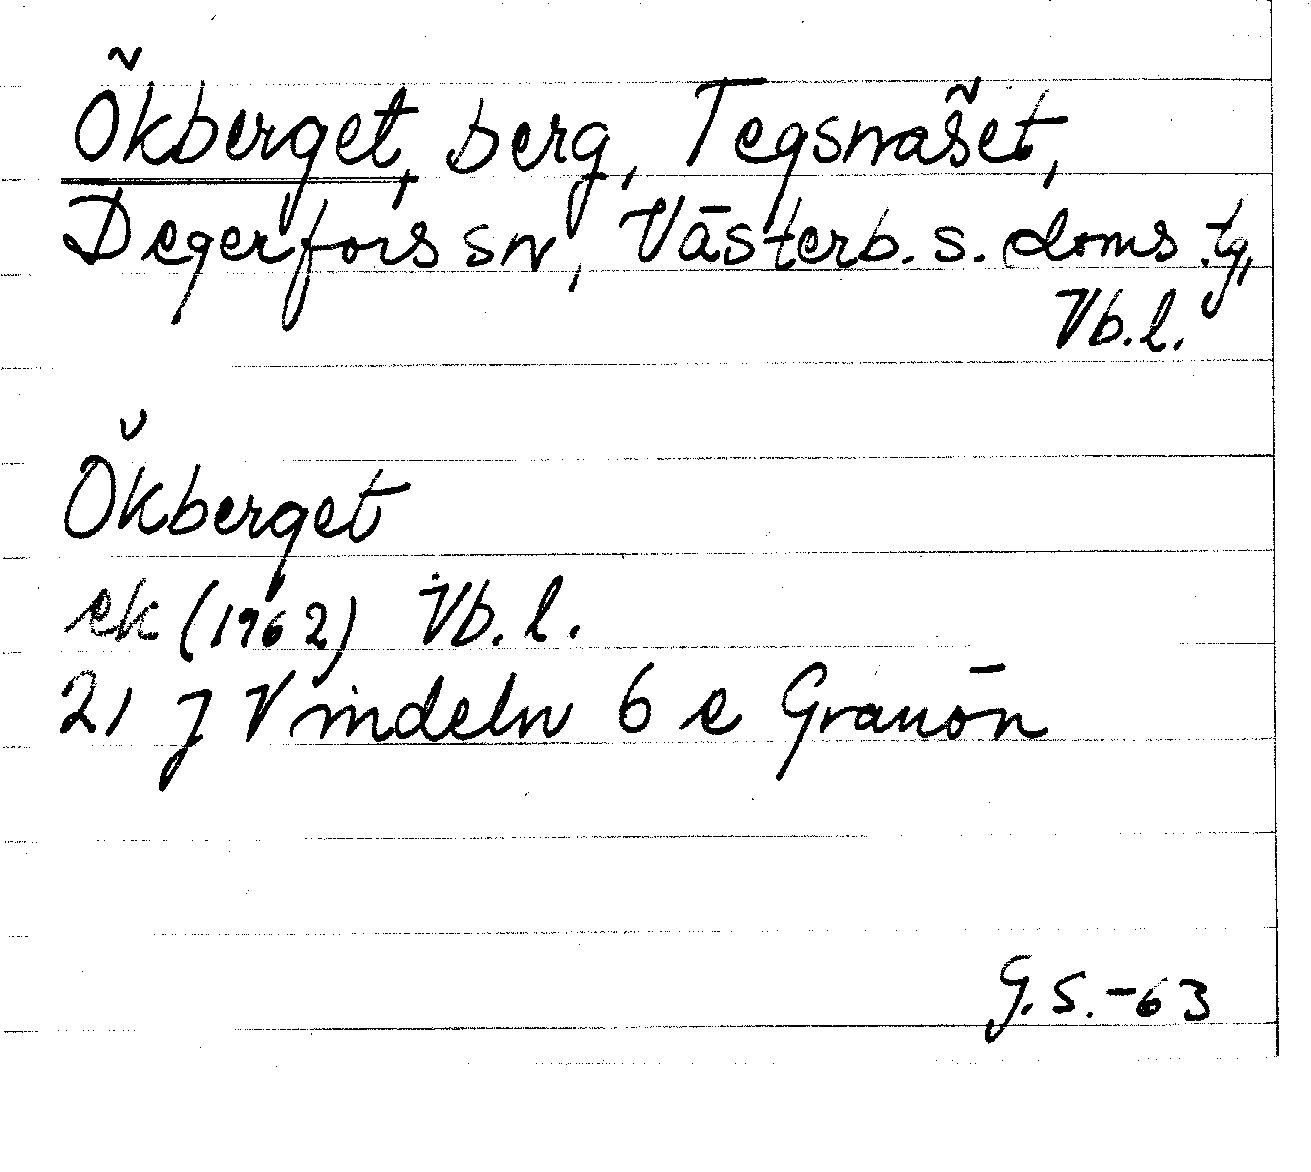 Ökberget, berg, Tegsnäset,
Degerfors sn, Västerb. s. doms. tg,
Vb. l.
Ökberget
ek (1962) Vb. l.
21 J Vindeln 6 e Granön
G. S. -63